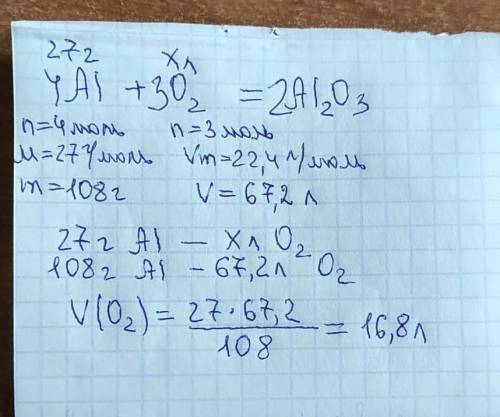 27г хл
4Al + 3O₂ = 2Al₂O₃
n=4моль n=3моль
M=27г/моль Vm=22,4л/моль
m=108г V=67,2л
27г Al — хл O₂
108г Al - 67,2л O₂
V(O₂) = 27·67,2 / 108 = 16,8л